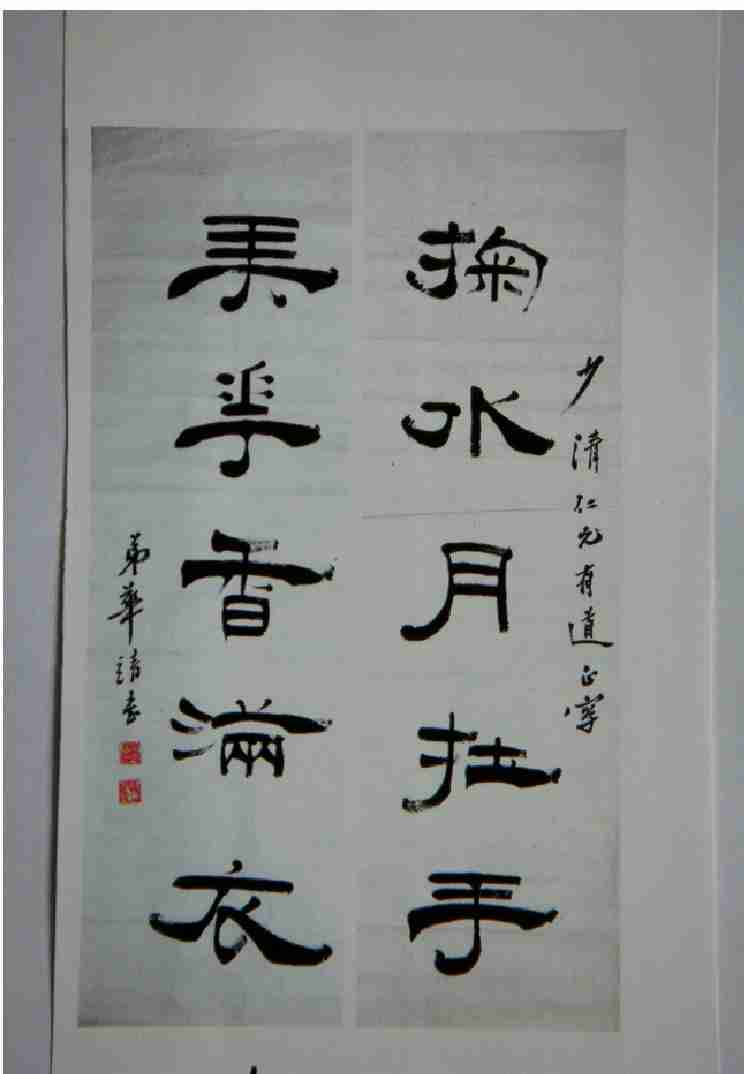 掬水月在手
少清仁兄有道正字
弄華香滿衣
弟華靖書